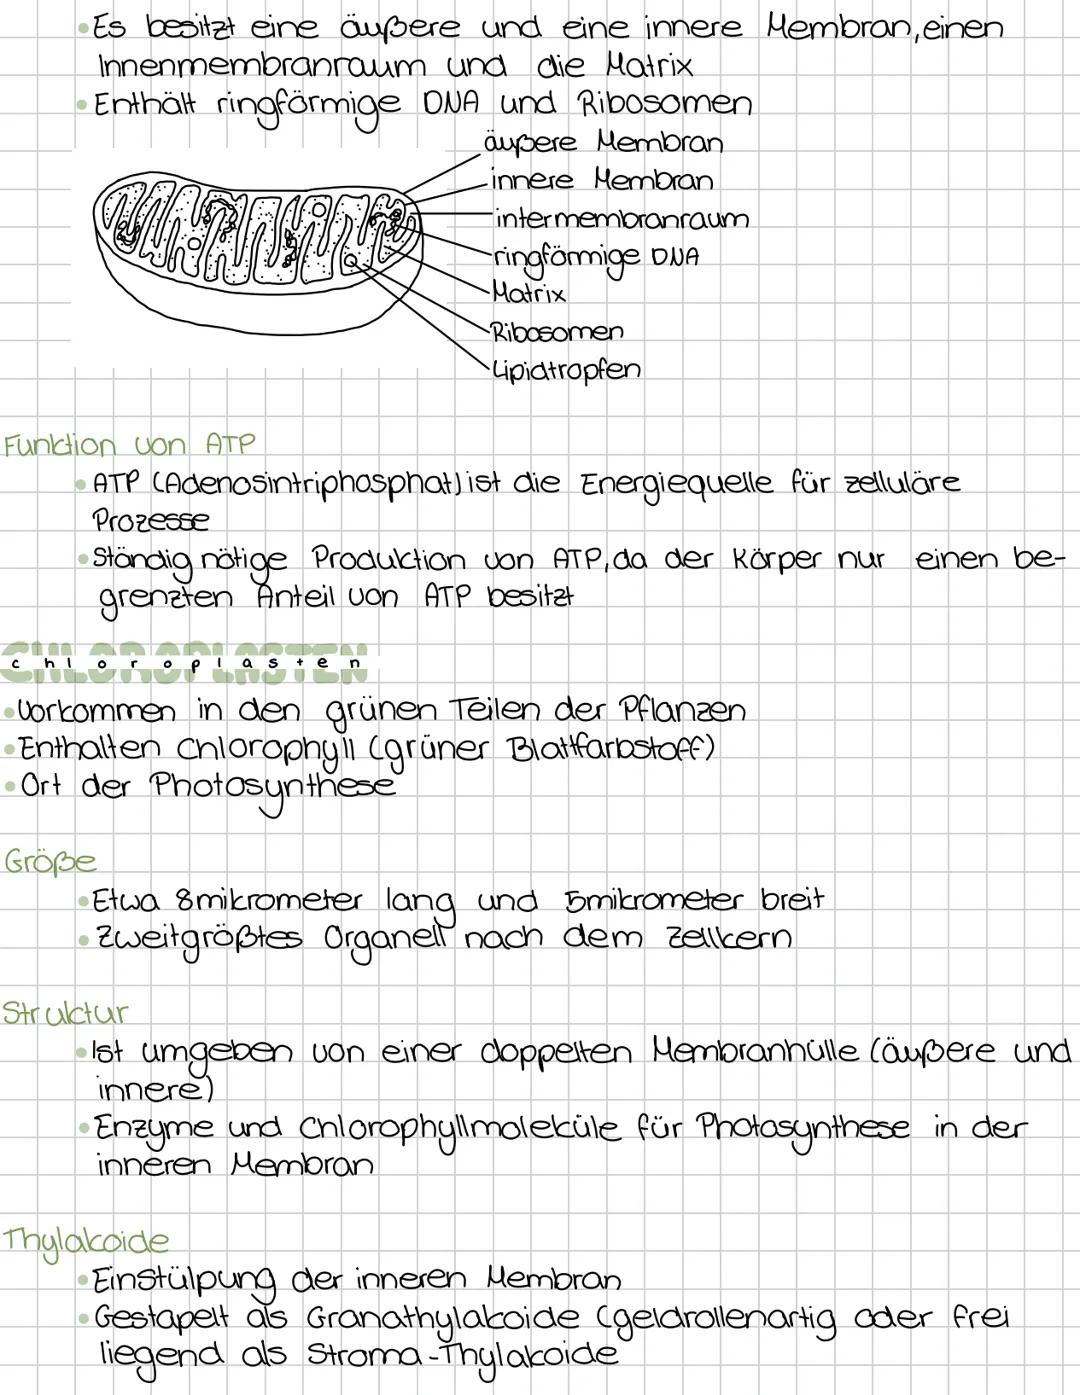 •Es besitzt eine äußere und eine innere Membran, einen
Innenmembranraum und die Matrix
•Enthält ringförmige DNA und Ribosomen
äußere Membran
innere Membran
intermembranraum
ringförmige DNA
Matrix
Ribosomen
Lipidtropfen
Funktion von ATP
•ATP (Adenosintriphosphat) ist die Energiequelle für zelluläre
Prozesse
•Ständig nötige Produktion von ATP, da der Körper nur einen be-
grenzten Anteil von ATP besitzt
CHLOROPLASTEN
chloroplasten
•Vorkommen in den grünen Teilen der Pflanzen
•Enthalten Chlorophyll (grüner Blattfarbstoff)
•Ort der Photosynthese
Größe
•Etwa 8mikrometer lang und 5mikrometer breit
•Zweitgrößtes Organell nach dem Zellkern
Struktur
•Ist umgeben von einer doppelten Membranhülle (äußere und
innere)
•Enzyme und Chlorophyllmoleküle für Photosynthese in der
inneren Membran
Thylakoide
•Einstülpung der inneren Membran
•Gestapelt als Granathylakoide (geldrollenartig oder frei
liegend als Stroma-Thylakoide